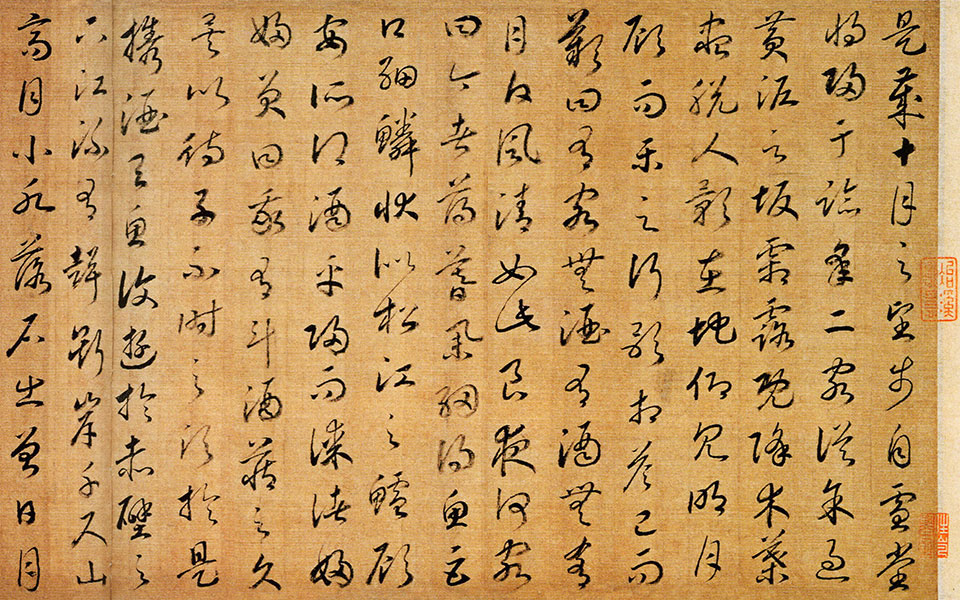 是歲十月之望步自雪堂
將歸于臨皋二客從余過
黃泥之坂霜露既降木葉
盡脫人影在地仰見明月
顧而樂之行歌相答已而
歎曰有客無酒有酒無肴
月白風清如此良夜何客
曰今者薄暮舉網得魚巨
口細鱗狀似松江之鱸顧
安所得酒乎歸而謀諸婦
婦曰我有斗酒藏之久
矣以待子不時之須於是
攜酒與魚復遊於赤壁之
下江流有聲斷岸千尺山
高月小水落石出曾日月